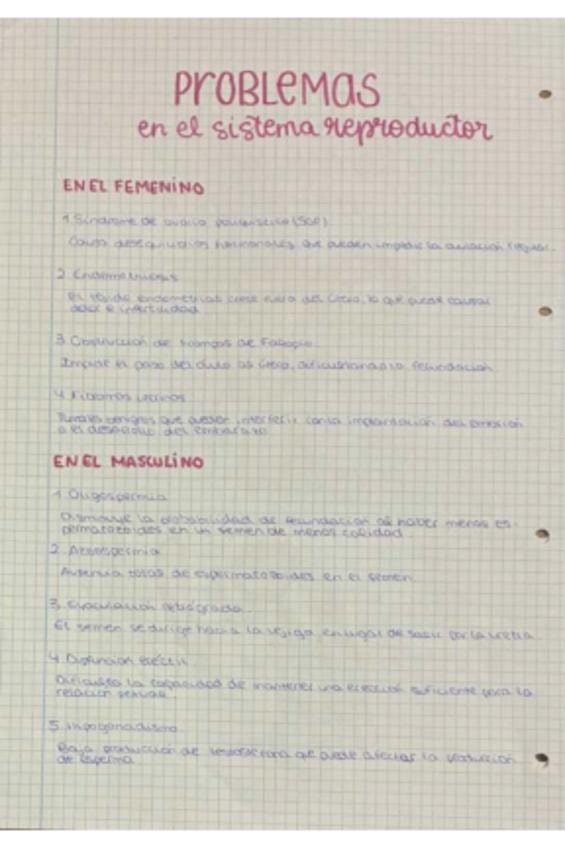 PROBLEMAS
en el sistema reproductor
EN EL FEMENINO
1. Síndrome de ovario poliquístico (SOP)
Causa desequilibrios hormonales que pueden impedir la ovulación regular.
2. Endometriosis
El tejido endometrial crece fuera del útero, lo que puede causar
dolor e infertilidad
3. Obstrucción de trompas de Falopio
Impide el paso del óvulo al útero, dificultando la fecundación
4. Fibromas uterinos
Tumores benignos que pueden interferir con la implantación del embrión
o el desarrollo del embarazo
EN EL MASCULINO
1. Oligospermia
Disminuye la probabilidad de fecundación al haber menos es-
permatozoides en un semen de menos calidad
2. Azoospermia
Ausencia total de espermatozoides en el semen
3. Eyaculación retrógrada
El semen se dirige hacia la vejiga en lugar de salir por la uretra
4. Disfunción eréctil
Dificulta la capacidad de mantener una erección suficiente para la
relación sexual
5. Hipogonadismo
Baja producción de testosterona que puede afectar la producción
de esperma